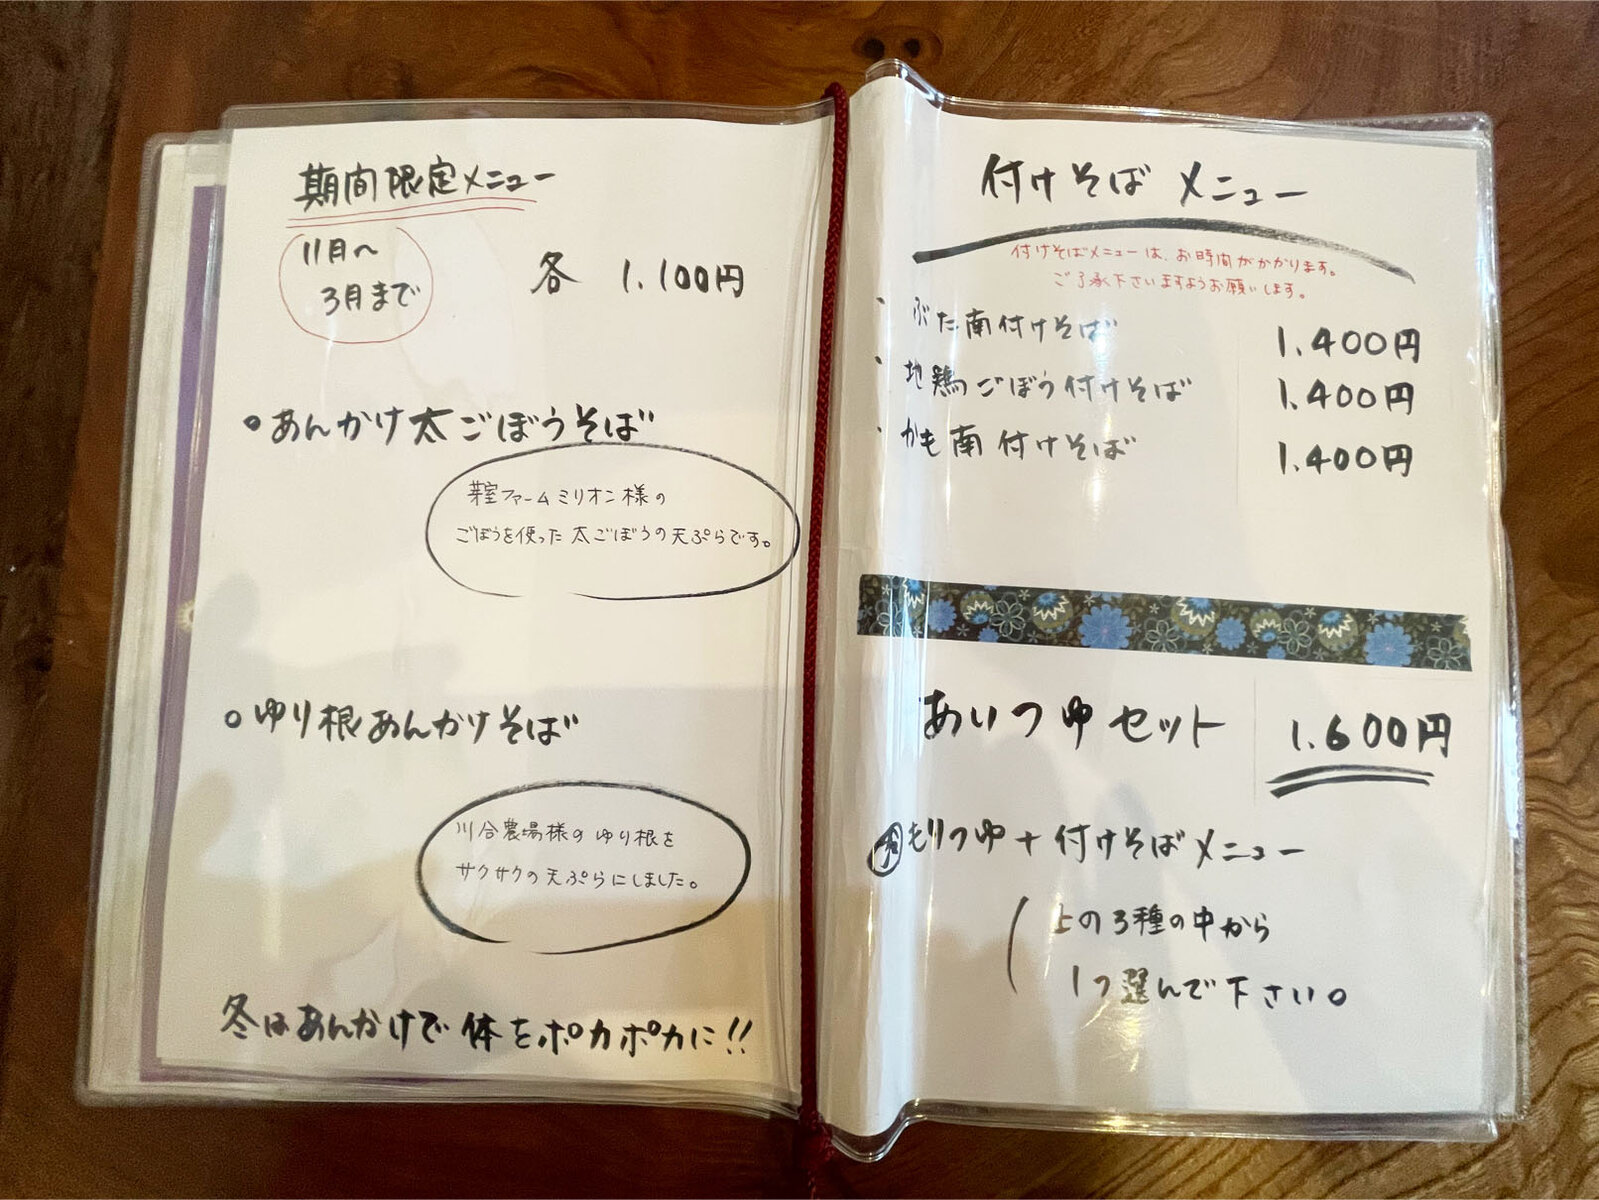 期間限定メニュー
11月〜
3月まで
各 1.100円
あんかけ太ごぼうそば
芽室ファームミリオン様の
ごぼうを使った太ごぼうの天ぷらです。
ゆり根あんかけそば
川合農場様のゆり根を
サクサクの天ぷらにしました。
冬はあんかけで体をポカポカに!!
付けそばメニュー
付けそばメニューは、お時間がかかります。
ご了承下さいますようお願いします。
・ぶた南付けそば 1.400円
・地鶏ごぼう付けそば 1.400円
・かも南付けそば 1.400円
あいつゆセット 1.600円
もりつゆ+付けそばメニュー
上の3種の中から
1つ選んで下さい。